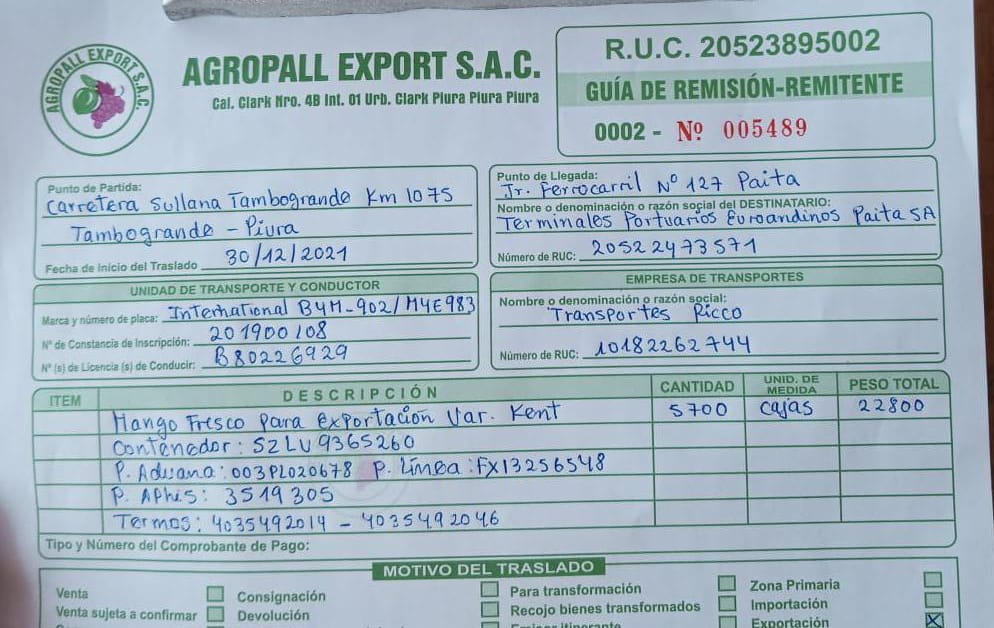 AGROPALL EXPORT S.A.C.
AGROPALL EXPORT S.A.C.
Cal. Clark Nro. 4B Int. 01 Urb. Clark Piura Piura Piura
R.U.C. 20523895002
GUÍA DE REMISIÓN-REMITENTE
0002 - Nº 005489
Punto de Partida:
Carretera Sullana Tambogrande Km 1075
Tambogrande - Piura
Fecha de Inicio del Traslado 30/12/2021
Punto de Llegada:
Jr. Ferrocarril Nº 127 Paita
Nombre o denominación o razón social del DESTINATARIO:
Terminales Portuarios Euroandinos Paita SA
Número de RUC: 20522473571
UNIDAD DE TRANSPORTE Y CONDUCTOR
Marca y número de placa: International B4M-902/M4E983
Nº de Constancia de Inscripción: 201900108
Nº (s) de Licencia (s) de Conducir: B80226929
EMPRESA DE TRANSPORTES
Nombre o denominación o razón social:
Transportes Ricco
Número de RUC: 10182262744
ITEM DESCRIPCIÓN CANTIDAD UNID. DE MEDIDA PESO TOTAL
Mango Fresco para exportación Var. Kent 5700 cajas 22800
Contenedor: SZLU9365260
P. Aduana: 003PL020678 P. Línea: FX13256548
P. Aphis: 3519305
Termos: 4035492014 - 4035492046
Tipo y Número del Comprobante de Pago:
MOTIVO DEL TRASLADO
Venta Consignación Para transformación Zona Primaria
Venta sujeta a confirmar Devolución Recojo bienes transformados Importación
Emisor itinerante Exportación X